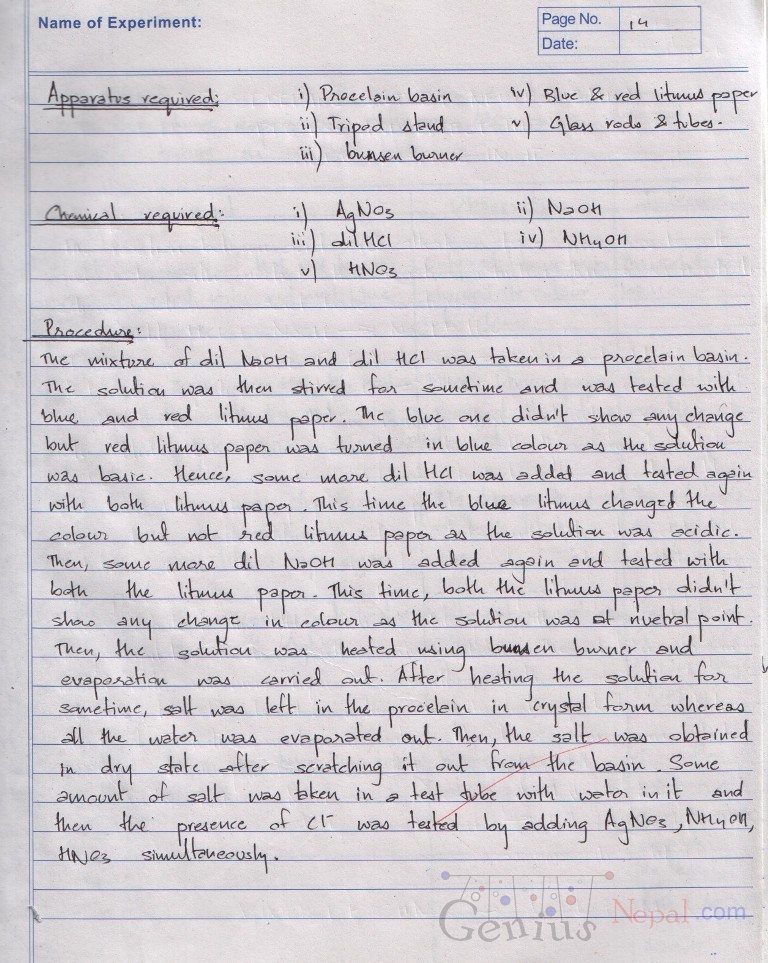 Name of Experiment:
Page No. 14
Date:
Apparatus required: i) Procelain basin iv) Blue & red litmus paper
ii) Tripod stand v) Glass rods & tubes.
iii) bunsen burner
Chemical required: i) AgNO3 ii) NaOH
iii) dil HCl iv) NH4OH
v) HNO3
Procedure:
The mixture of dil NaOH and dil HCl was taken in a procelain basin.
The solution was then stirred for sometime and was tested with
blue and red litmus paper. The blue one didn't show any change
but red litmus paper was turned in blue colour as the solution
was basic. Hence, some more dil HCl was added and tested again
with both litmus paper. This time the blue litmus changed the
colour but not red litmus paper as the solution was acidic.
Then, some more dil NaOH was added again and tested with
both the litmus paper. This time, both the litmus paper didn't
show any change in colour as the solution was at nuetral point.
Then, the solution was heated using bunsen burner and
evaporation was carried out. After heating the solution for
sometime, salt was left in the procelein in crystal form whereas
all the water was evaporated out. Then, the salt was obtained
in dry state after scratching it out from the basin. Some
amount of salt was taken in a test tube with water in it and
then the presence of Cl- was tested by adding AgNO3, NH4OH,
HNO3 simultaneously.
Genius Nepal.com